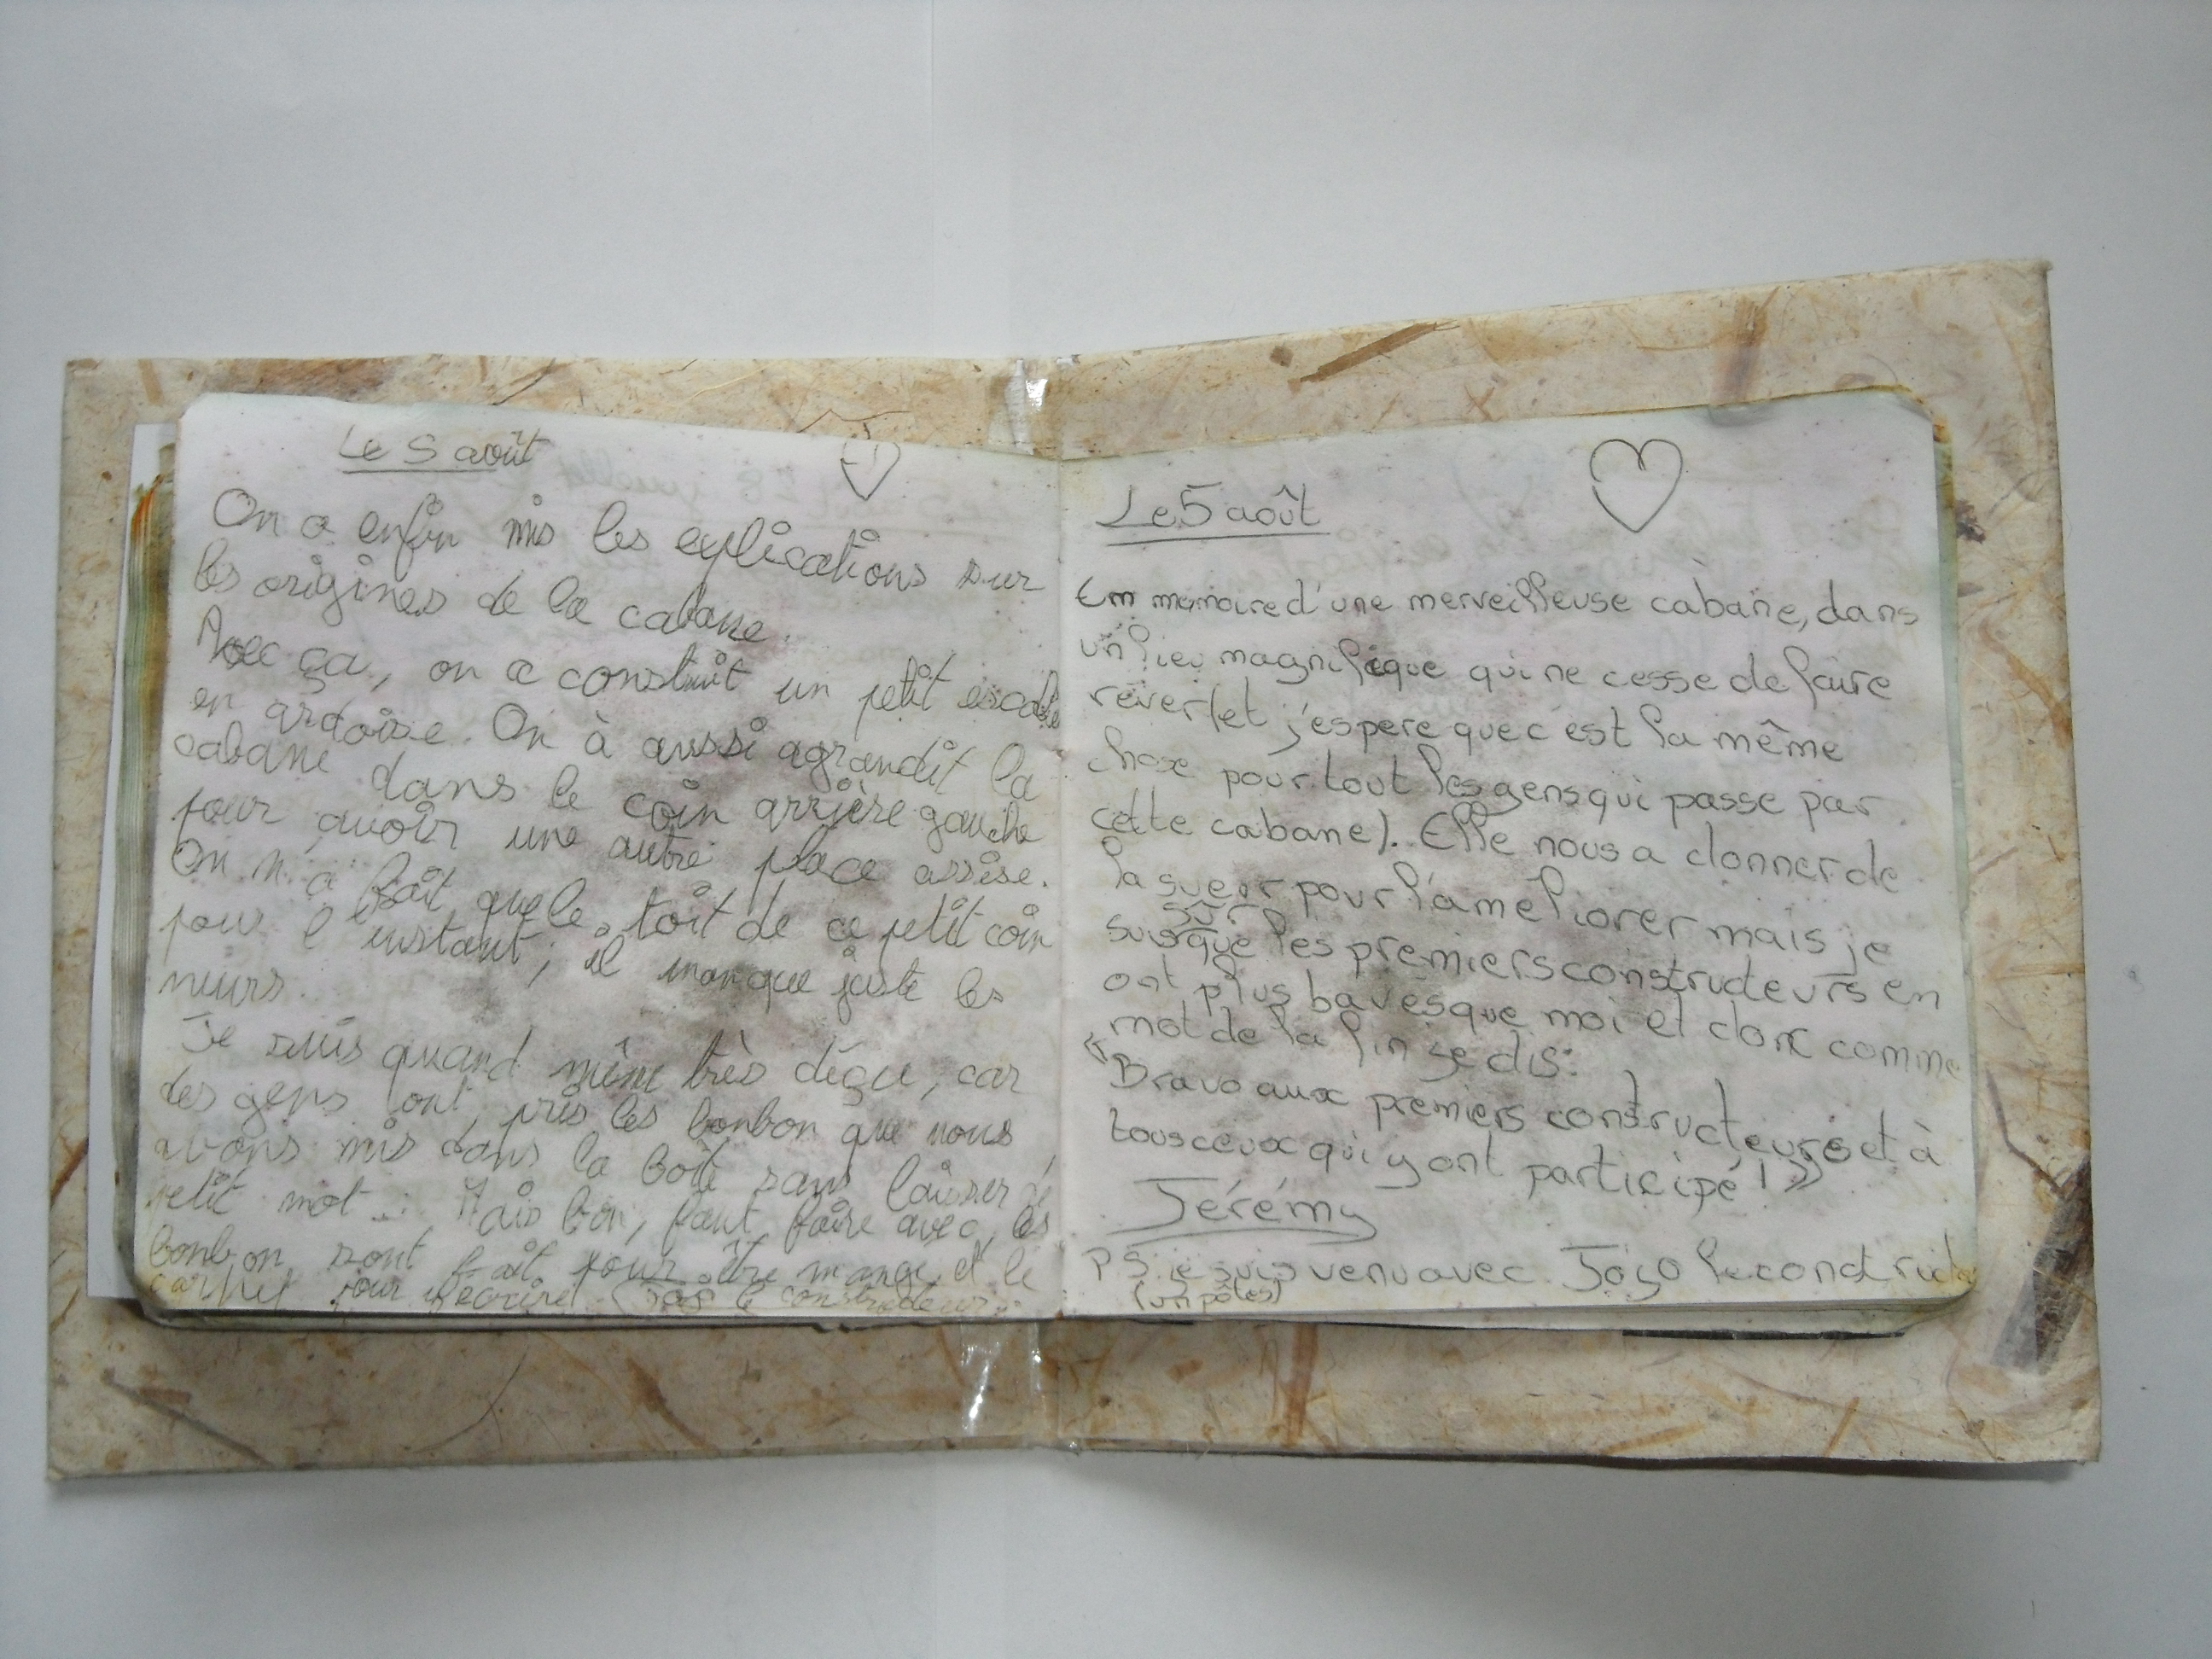 Le 5 août
On a enfin mis les explications sur
les origines de la cabane.
Avec ça, on a construit un petit escalier
en ardoise. On à aussi agrandit la
cabane dans le coin arrière gauche
pour avoir une autre place assise.
On n'a fait que le toit de ce petit coin
pour l'instant, il manque juste les
murs.
Je suis quand même très déçu, car
des gens ont pris les bonbon que nous
avons mis dans la boîte sans laisser de
petit mot... Mais bon, faut faire avec, les
bonbon sont fait pour être mangé et le
carnet pour écrire! le constructeur
Le 5 août
En memoire d'une merveilleuse cabane, dans
un lieu magnifique qui ne cesse de faire
rêver (et j'espere que c'est la même
chose pour tout les gens qui passe par
cette cabane). Elle nous a donner de
la sueur pour l'améliorer mais je
suis sûr que les premiers constructeurs en
ont plus bavés que moi et donc comme
mot de la fin je dis:
"Bravo aux premiers constructeurs et à
tous ceux qui y ont participé!»
Jérémy
PS je suis venu avec Jojo le constructe
(un potes)